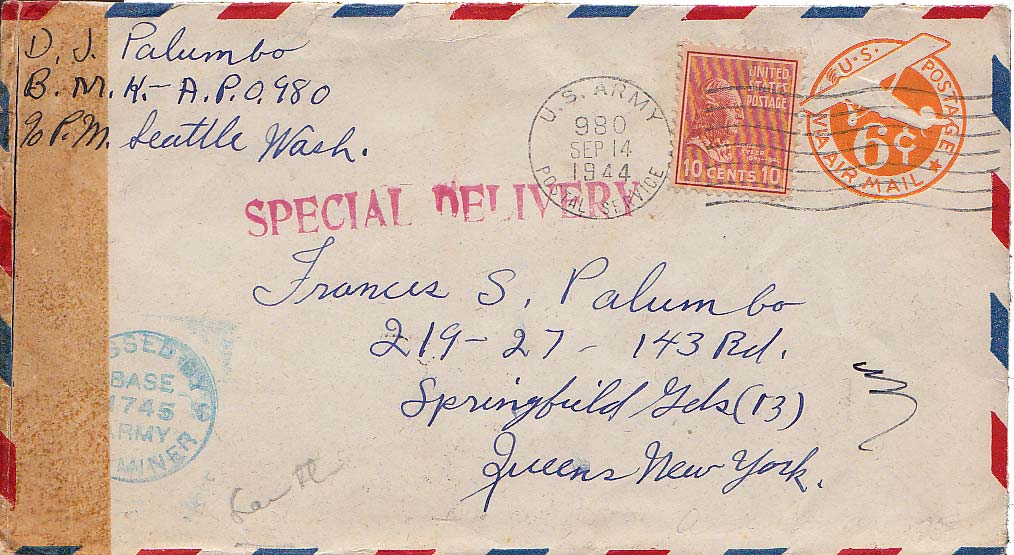 D. J. Palumbo
B. M. H. - A.P.O. 980
℅ P.M. Seattle Wash.
U.S. ARMY
980
SEP 14
1944
POSTAL SERVICE
UNITED
STATES
POSTAGE
10 CENTS 10
U.S. POSTAGE
6¢
VIA AIR MAIL
SPECIAL DELIVERY
Frances S. Palumbo
219-27 - 143 Rd.
Springfield Gds (13)
Queens New York.
SSED BY
BASE
1745
ARMY
MINER